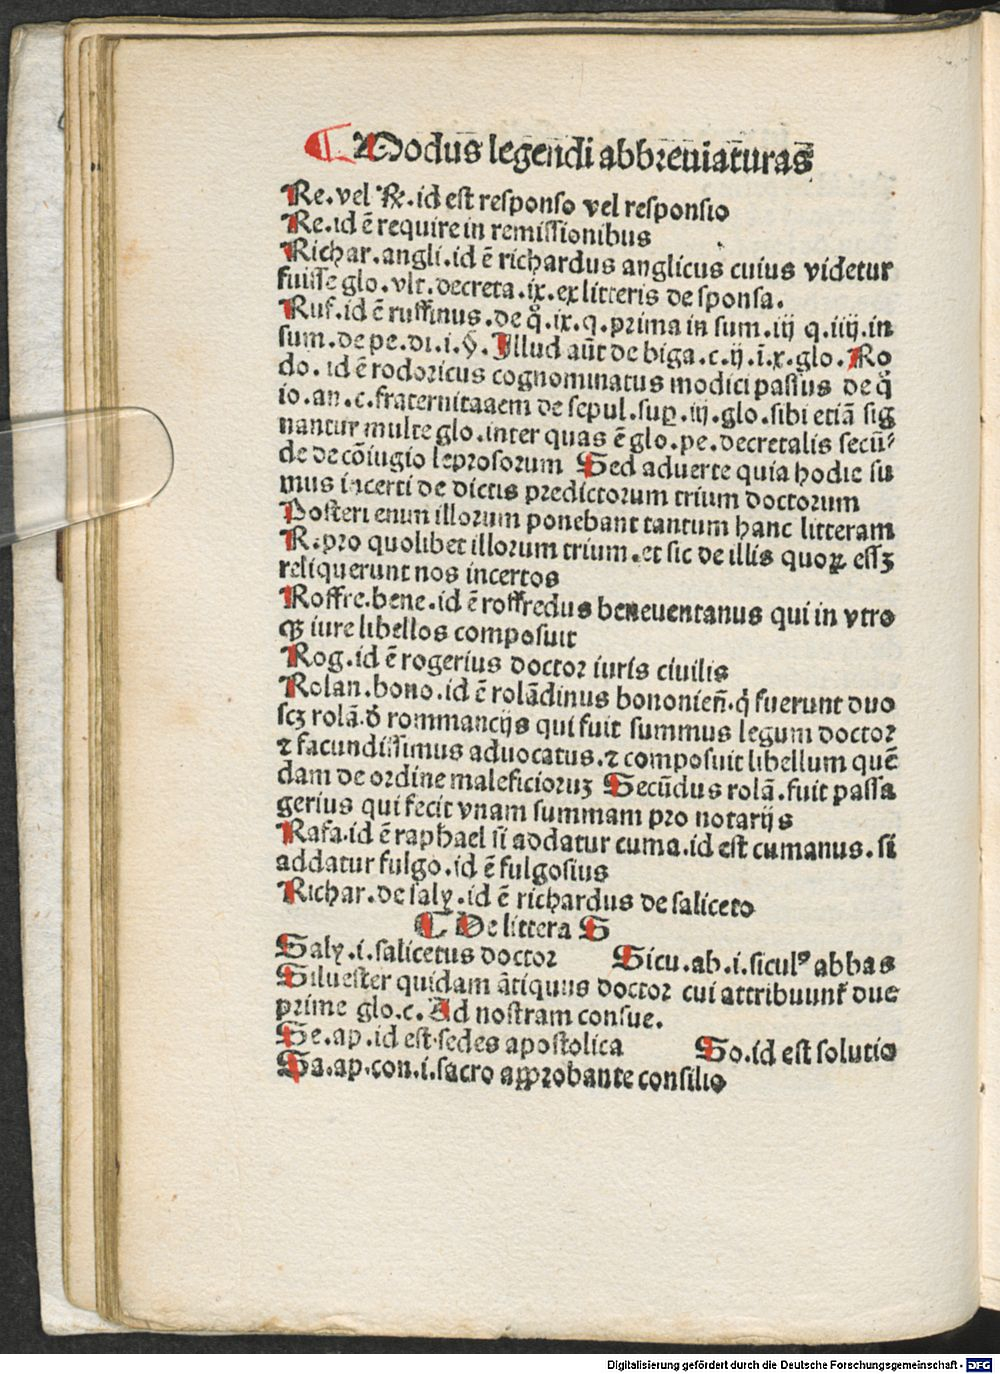 ¶ Modus legendi abbreuiaturas
Re. vel R̨. id est responso vel responsio
Re. id ē require in remissionibus
Richar. angli. id ē richardus anglicus cuius videtur
fuisse glo. vlt. decreta. ix. ex litteris de sponsa.
Ruf. id ē ruffinus. de q̊. ix. q. prima in sum. iij q. iiij. in
sum. de pe. di. i. §. Illud aūt de biga. c. ij. i. x. glo. Ro
do. id ē rodoricus cognominatus modici passus de q̊
io. an. c. fraternitaaem de sepul. sup. iij. glo. sibi etiā sig
nantur multe glo. inter quas ē glo. pe. decretalis secū⸗
de de cōiugio leprosorum Sed aduerte quia hodie su
mus incerti de dictis predictorum trium doctorum
Posteri enim illorum ponebant tantum hanc litteram
R. pro quolibet illorum trium. et sic de illis quoꝝ essꝫ
reliquerunt nos incertos
Roffre. bene. id ē roffredus beneuentanus qui in vtro
qꝫ iure libellos composuit
Rog. id ē rogerius doctor iuris ciuilis
Rolan. bono. id ē rolādinus bononieñ. q̇ fuerunt duo
scꝫ rolā. d̄ rommancijs qui fuit summus legum doctor
⁊ facundissimus aduocatus. ⁊ composuit libellum quē
dam de ordine maleficioruꝫ Secūdus rolā. fuit passa
gerius qui fecit vnam summam pro notarijs
Rafa. id ē raphael si addatur cuma. id est cumanus. si
addatur fulgo. id ē fulgosius
Richar. de saly. id ē richardus de saliceto
¶ De littera S
Saly. i. salicetus doctor Sicu. ab. i. siculꝰ abbas
Siluester quidam ātiquus doctor cui attribuunt᷑ due
prime glo. c. Ad nostram consue.
Se. ap. id est sedes apostolica So. id est solutio
Sa. ap. con. i. sacro approbante consilio
Digitalisierung gefördert durch die Deutsche Forschungsgemeinschaft - DFG